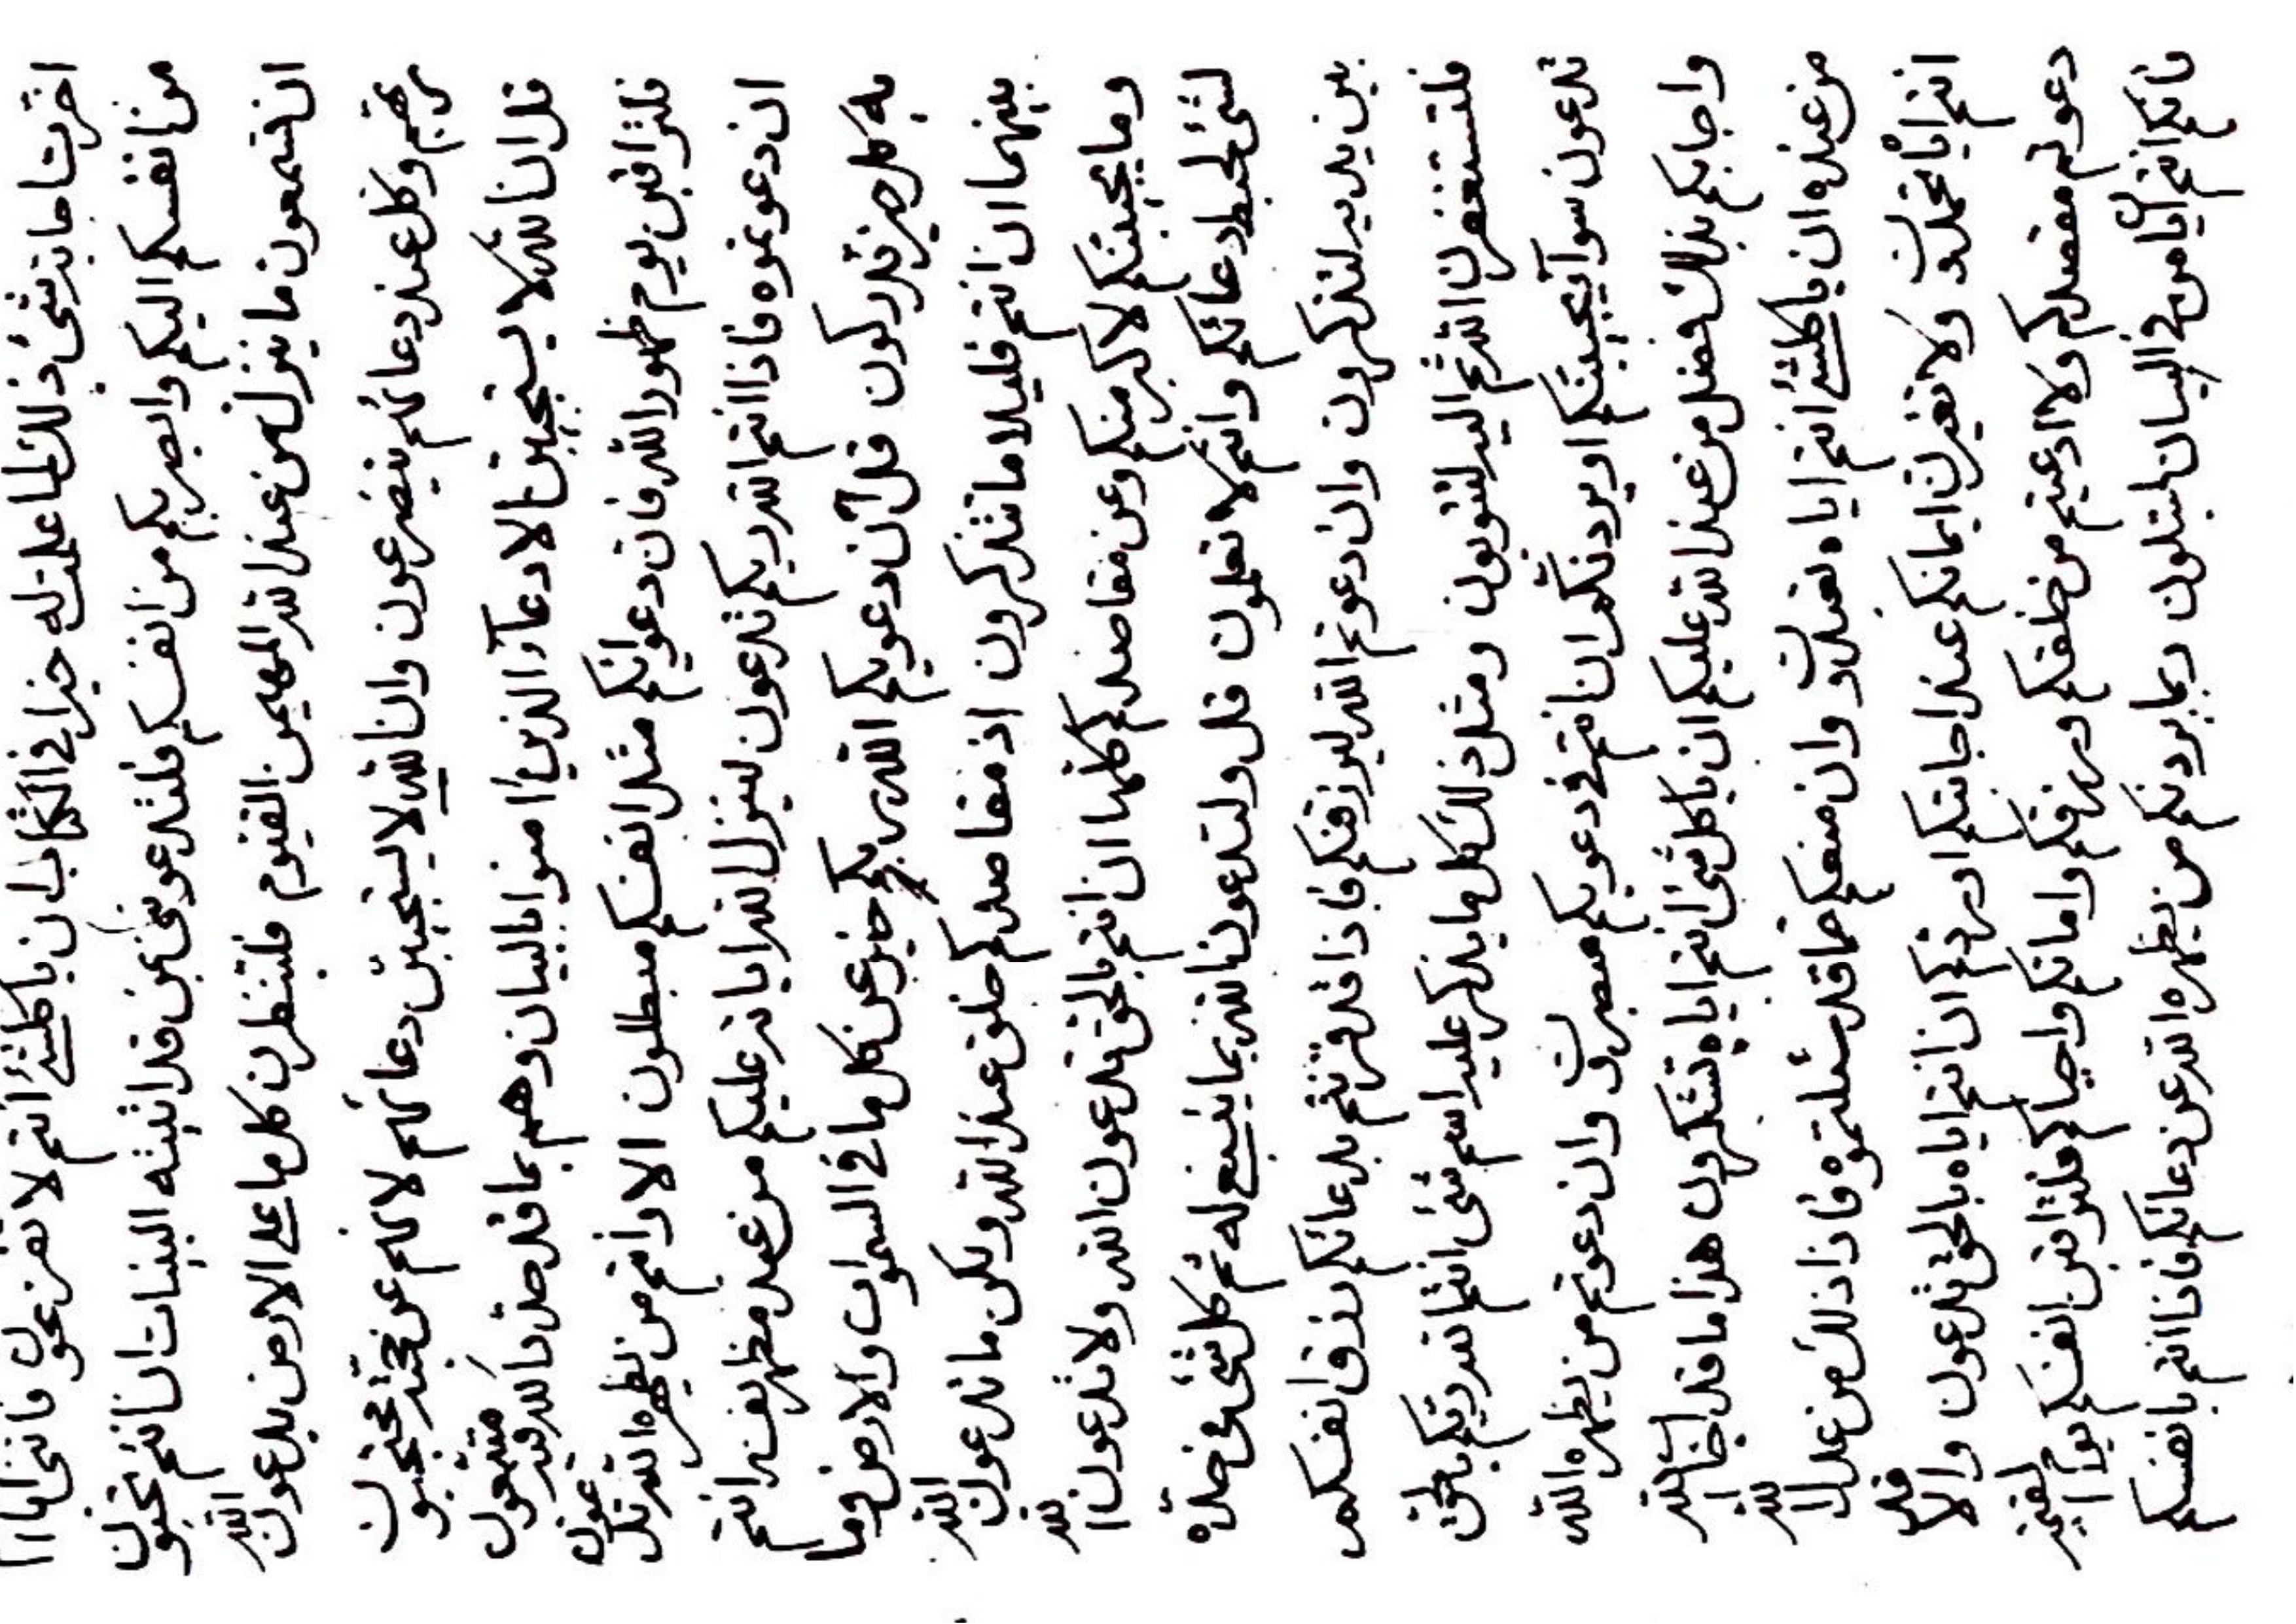 اخرت ما بد شئ ذلك لما علمت له خيرا في الكتاب ان يا كلشئ انتم لا تفزعون فانني انا
من انفسكم اليكم وابصر بكم من انفسكم فلتدعونني بمن قد اتيته البينات ان انتم تحبون
ان تسمعون ما ينزل من عند الله المهيمن القيوم فلتنظرن كل ما على الارض يدعون الله
ربهم وكل عند دعائهم يتضرعون وان الله لا يستجيبن دعائهم لانهم عن حجته محتجبون
قل ان الله لا يستجيبن الا دعآء الذين امنوا بالبيان وهم بما قد حدد الله فيه متبعون
فلتراقبن يوم ظهور الله فان دعوانكم مثل انفسكم مبطلون الا وانتم من يظهره الله تدعون
ان دعوتموه فاذا انتم الله ربكم تدعون لينزل الله اياته عليكم من عند مظهر نفسه انتم
به كل خير تدركون قل ان دعوتكم الله ربكم خير عن كل ما في السموات والارض وما
بينهما ان انتم قليلا ما تتذكرون اذ مقاصدكم خلق عند الله ولكن ما تدعون الله
وما يجيبنكم لاكبر منكم وعن مقاصدكم كلها ان انتم بالحق تدعون الله ولا تدعون الله
لشئ لحبط دعائكم وانتم لا تعلمون قل ولتدعون الله بما ينبغي له ثم كل شئ في حده
بين يديه لتذكرون وان دعوتم الله ليرزقنكم فاذا قد قرنتم بدعائكم رزق انفسكم
فلتستغفرن الله ثم اليه لتتوبون ومثل ذلك كل ما يذكر عليه اسم شئ انتم الله ربكم بالحق
تدعون سوآء يجيبنكم او يردنكم ان انتم في دعوتكم مصبرون وان دعوتم من يظهره الله
واجابكم بذلك فضل من عند الله عليكم ان يا كل شئ انتم اياه تشكرون هذا ما قد اجاب الله
من عنده ان يا كلشئ انتم اياه تعبدون وان منعكم عما قد سئلتموه فاذا ذلك من عدل الله
انتم اياه تحمدون ولا تغيرن ايمانكم عند اجابتكم او ردكم ان انتم اياه بالحق تدعون والا قد
دعوتم مقصدكم ولا ادعيتم من خلقكم ورزقكم واماتكم واحياكم فلتراقبن انفسكم يوم القيمة
فانكم انتم في البيان لتبتلون ربما يردنكم من يظهره الله عن دعائكم فاذا انتم بانفسكم